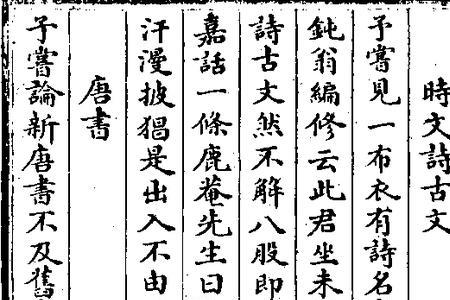 時文詩古文
予嘗見一布衣有詩名
鈍翁編修云此君坐未
詩古文然不解八股即
嘉話一條鹿菴先生曰
汗漫披猖是出入不由
唐書
予嘗論新唐書不及舊